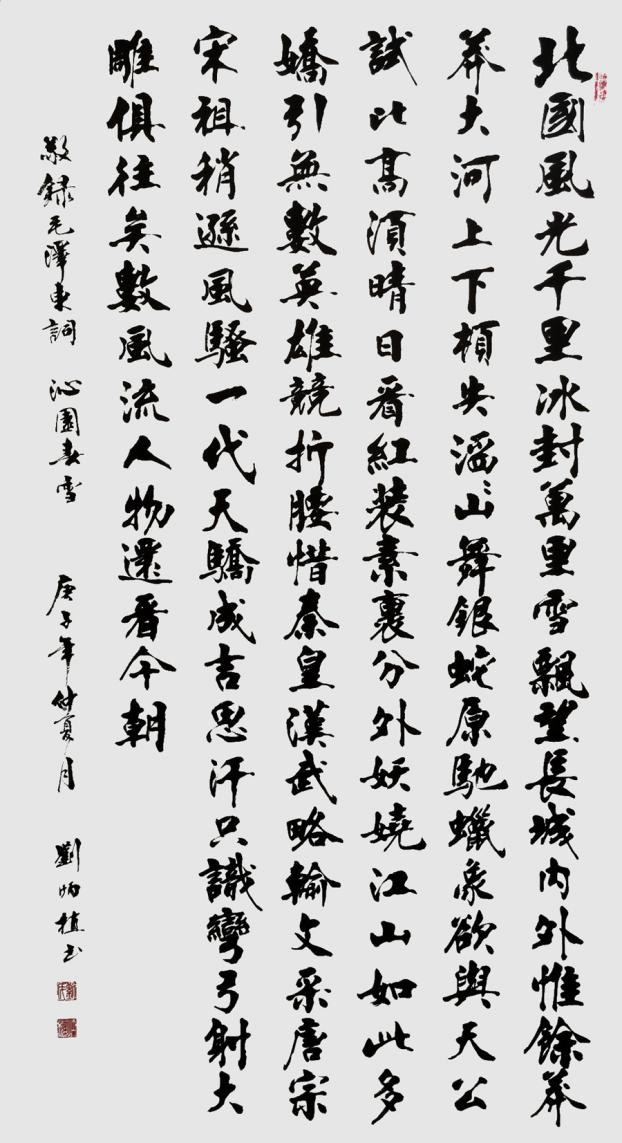 北國風光千里冰封萬里雪飄望長城内外惟餘莽
莽大河上下頓失滔〻山舞銀蛇原馳蠟象欲與天公
試比高須晴日看紅装素裹分外妖嬈江山如此多
嬌引無數英雄競折腰惜秦皇漢武略輸文采唐宗
宋祖稍遜風騷一代天驕成吉思汗只識彎弓射大
雕俱往矣數風流人物還看今朝
敬録毛澤東詞 沁園春雪 庚子年仲夏月 劉炳植书